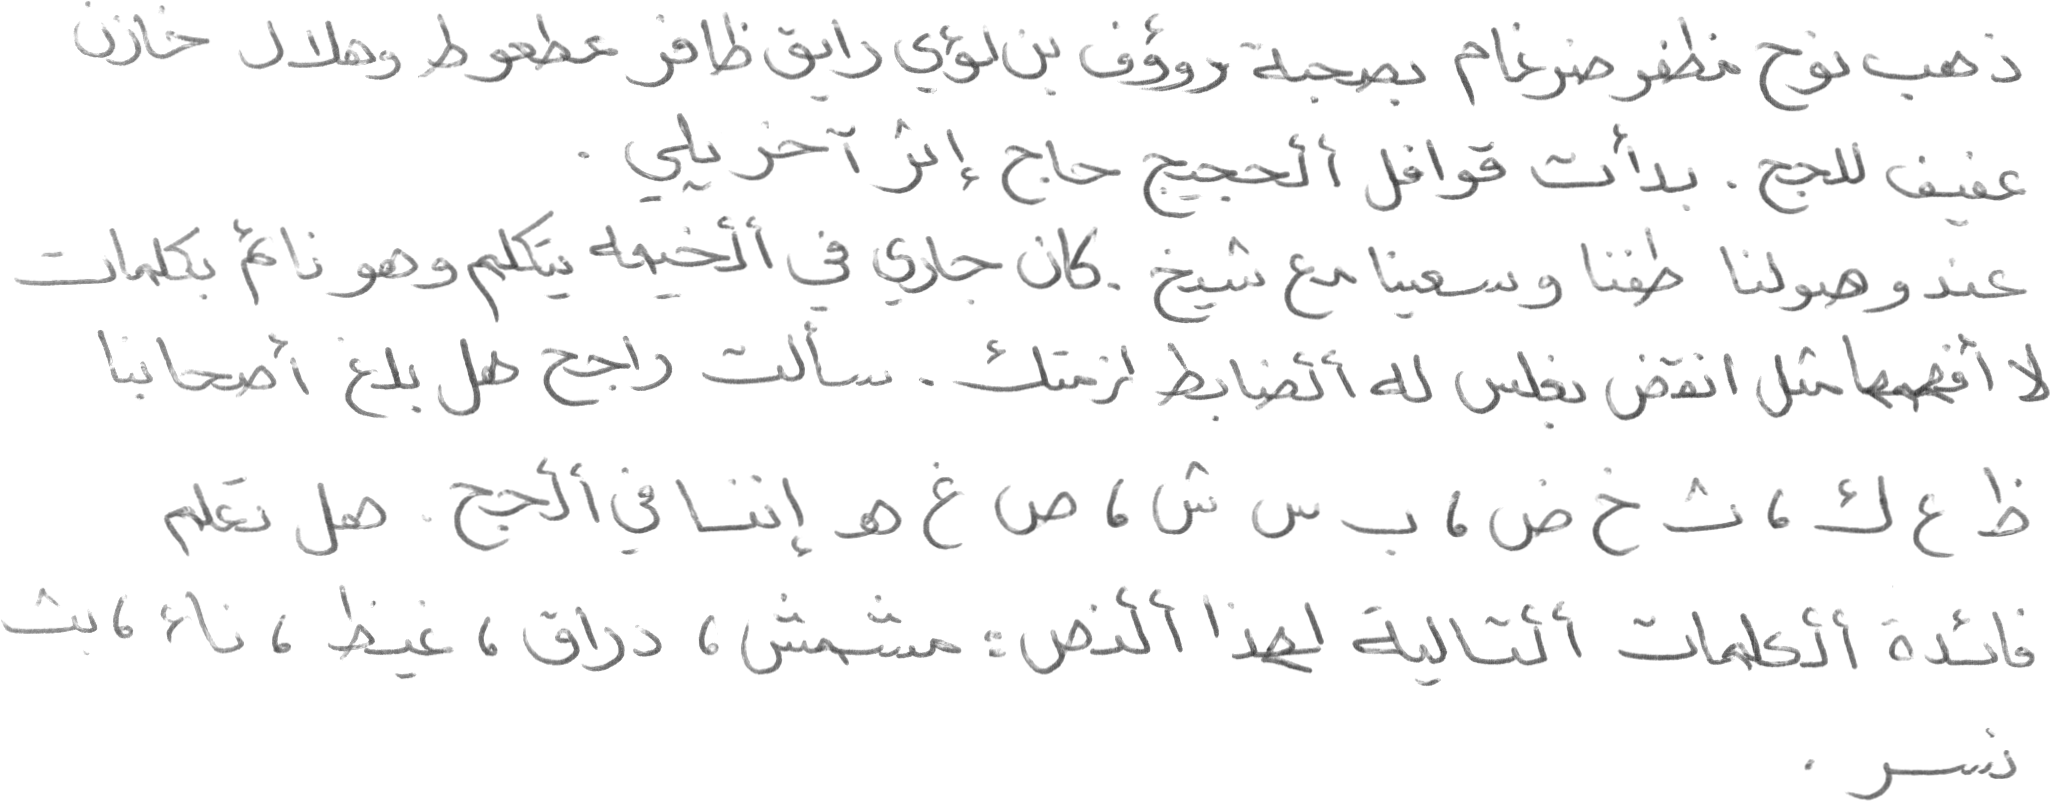 ذهب نوح مظفر ضرغام بصحبة رووؤف بن لؤي رايق ظافر عطعوط وهلال خازن
عفيف للحج . بدأت قوافل ألحجيج حاج إثر آخر يلي .
عند وصولنا طفنا وسعينا مع شيخ . كان جاري في ألخيمه يتكلم وهو نائم بكلمات
لا أفهمها مثل انقض بغلس له ألضابط لزمتك . سألت راجح هل بلغ أصحابنا
ظ ع ك ، ث خ ض ، ب س ش ، ص غ هـ إننا في ألحج . هل تعلم
فائدة ألكلمات ألتالية لهذا ألنص : مشمش ، دراق ، غيظ ، ناء ، بث
نسر .